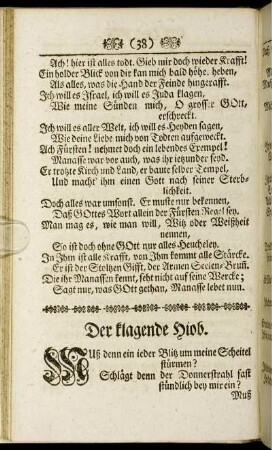 (38)
Ach! hier ist alles todt. Gieb mir doch wieder Krafft!
Ein holder Blick von dir kan mich bald höher heben,
Als alles, was die Hand der Feinde hingerafft.
Ich will es Israel, ich will es Juda klagen,
Wie meine Sünden mich, O grosser GOtt,
erschreckt.
Ich will es aller Welt, ich will es Heyden sagen,
Wie deine Liebe mich von Todten aufgeweckt.
Ach Fürsten! nehmet doch ein lebendes Exempel!
Manasse war vor auch, was ihr ietzunder seyd.
Er trotzte Kirch und Land, er baute selber Tempel,
Und macht' ihm einen Gott nach seiner Sterb-
lichkeit.
Doch alles war umsonst. Er muste nur bekennen,
Daß GOttes Wort allein der Fürsten Regel sey.
Man mag es, wie man will, Witz oder Weißheit
nennen,
So ist doch ohne GOtt nur alles Heucheley.
In Ihm ist alle Krafft, von Ihm kommt alle Stärcke.
Er ist der Stoltzen Gifft, der Armen Seelen-Brust.
Die ihr Manassen kennt, seht nicht auf seine Wercke;
Sagt nur, was GOtt gethan, Manasse lebet nun.
Der klagende Hiob.
MUß denn ein ieder Blitz um meine Scheitel
stürmen?
Schlägt denn der Donnerstrahl fast
stündlich bey mir ein?
Muß